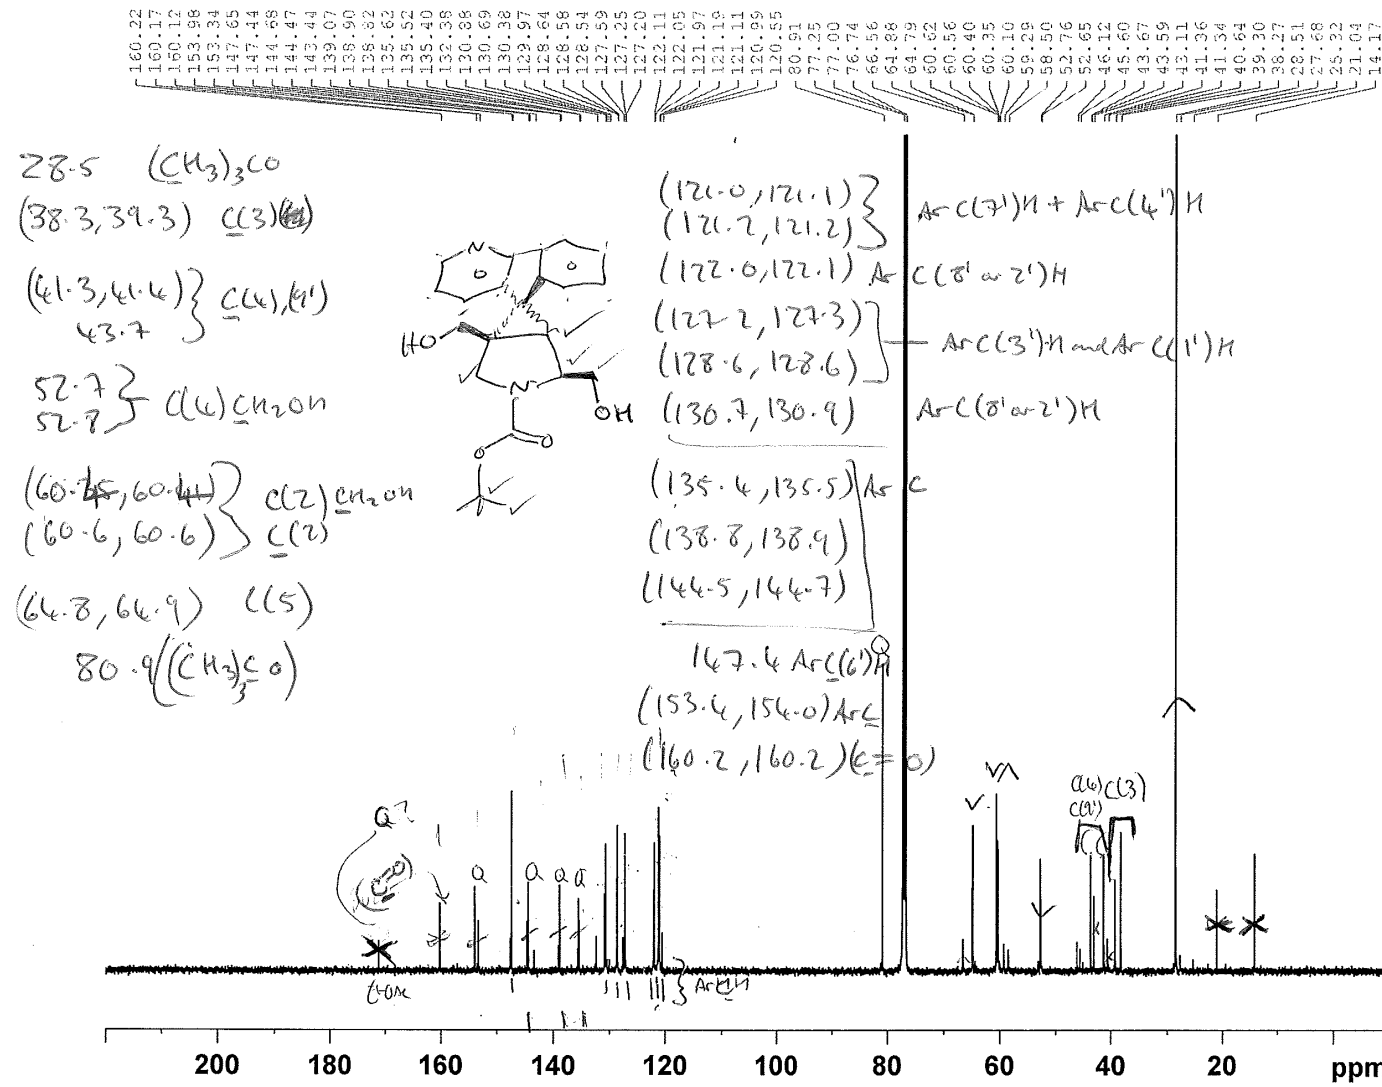 160.22
160.17
160.12
153.98
153.34
147.65
147.44
144.68
144.47
143.44
139.07
138.90
138.82
135.62
135.52
135.40
132.38
130.88
130.69
130.38
129.97
128.64
128.58
128.54
127.59
127.25
127.20
122.11
122.05
121.97
121.19
121.11
120.99
120.55
80.91
77.25
77.00
76.74
66.56
64.88
64.79
60.62
60.56
60.40
60.35
60.10
59.29
58.50
52.76
52.65
46.12
45.60
43.67
43.59
43.11
41.36
41.34
40.64
39.30
38.27
28.51
27.68
25.32
21.04
14.17
28.5 (CH3)3CO
(38.3, 39.3) C(3)
(41.3, 41.4)
43.7
C(4),(9')
52.7
52.8
C(4)CH2OH
(60.6, 60.6)
C(2)CH2OH
C(2)
(64.8, 64.9) C(5)
80.9 ((CH3)3CO)
N
HO
N
OH
O
O
(121.0, 121.1)
(121.2, 121.2)
ArC(7')H + ArC(4')H
(122.0, 122.1) ArC(8' or 2')H
(127.2, 127.3)
(128.6, 128.6)
ArC(3')H and ArC(1')H
(130.7, 130.9) ArC(8' or 2')H
(135.4, 135.5) ArC
(138.8, 138.9)
(144.5, 144.7)
147.4 ArC(6')H
(153.4, 154.0) ArC
(160.2, 160.2)(C=O)
Q?
(C=O)
Q
Q
Q
Q
Q
C(4)
C(9')
C(3)
200 180 160 140 120 100 80 60 40 20 ppm